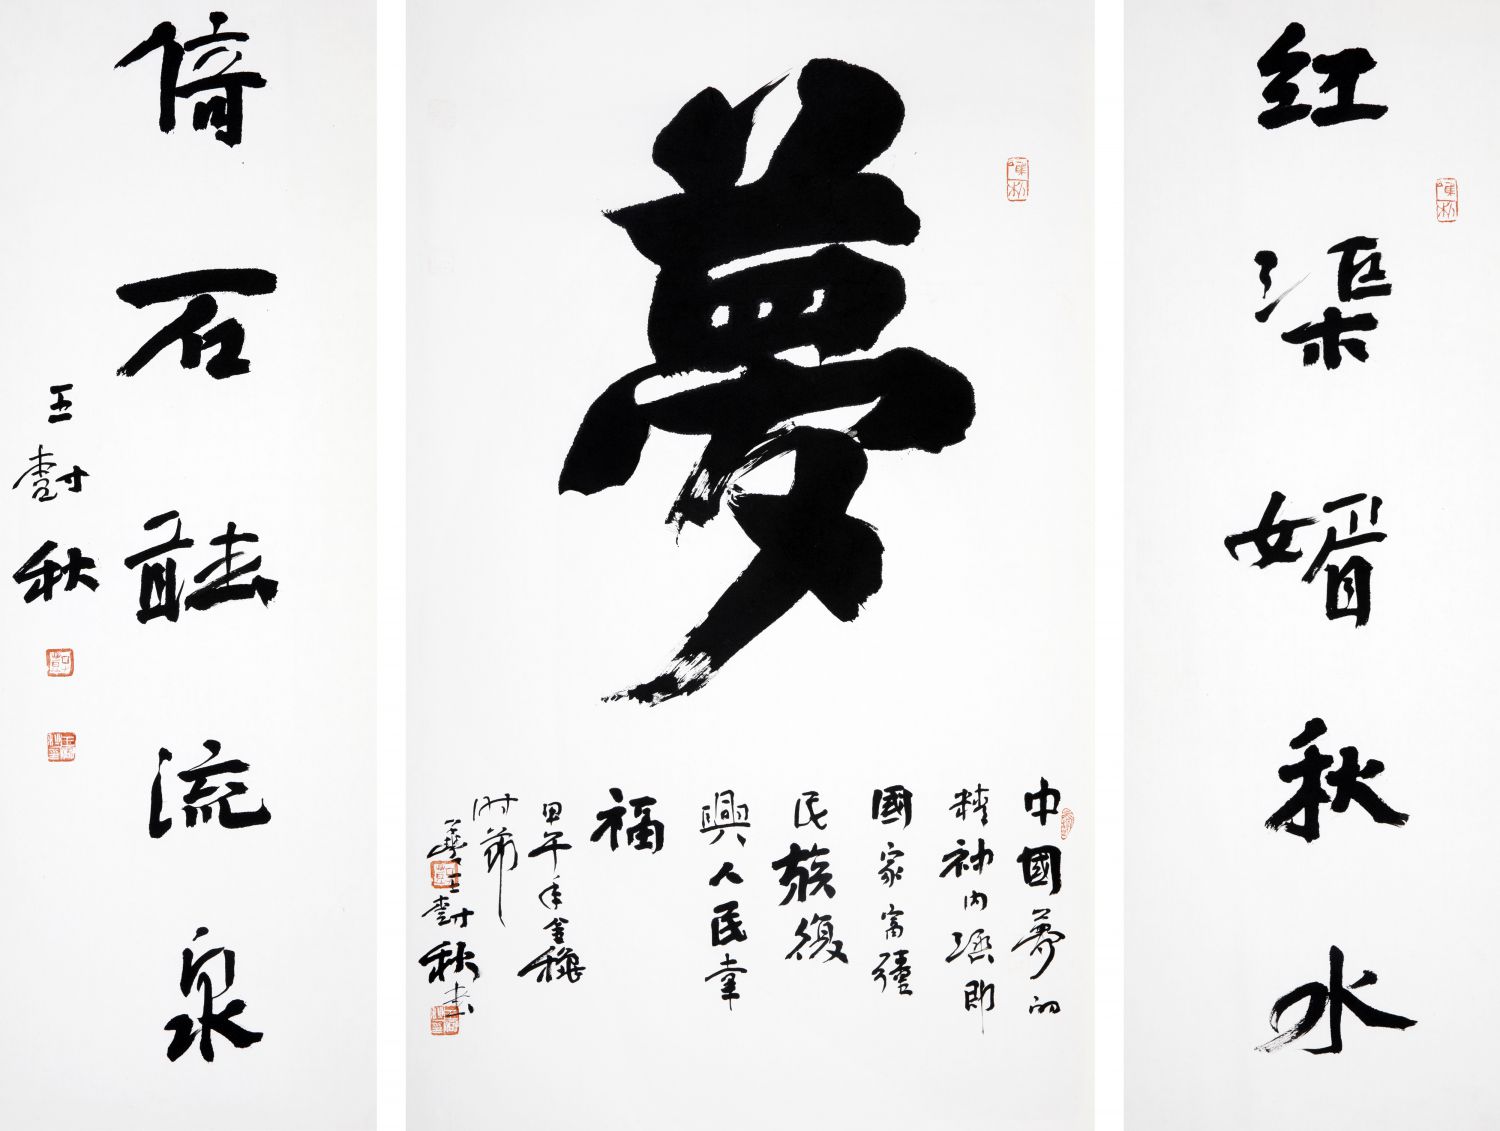 红渠媚秋水
夢
中國夢的
精神内涵即
國家富彊
民族復
興人民幸
福
甲午年金穐
时節
王尌秋書
倚石聽流泉
王尌秋